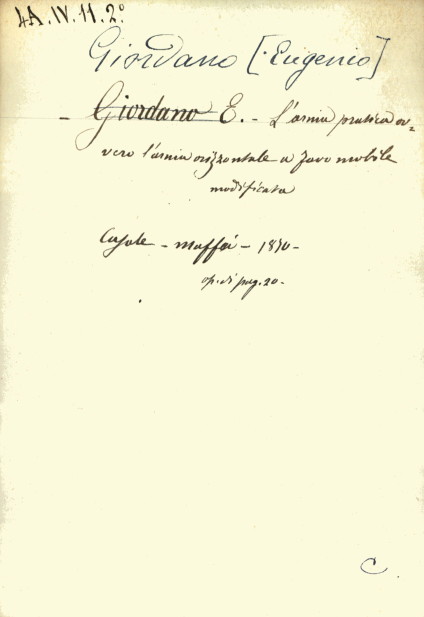 4A.IV.11.2º
Giordano [Eugenio]
- Giordano E. - L'arnia pratica ov=
vero l'arnia orizzontale a favo mobile
modificata
Casale - Maffei - 1870 -
op. di pag. 20 -
C